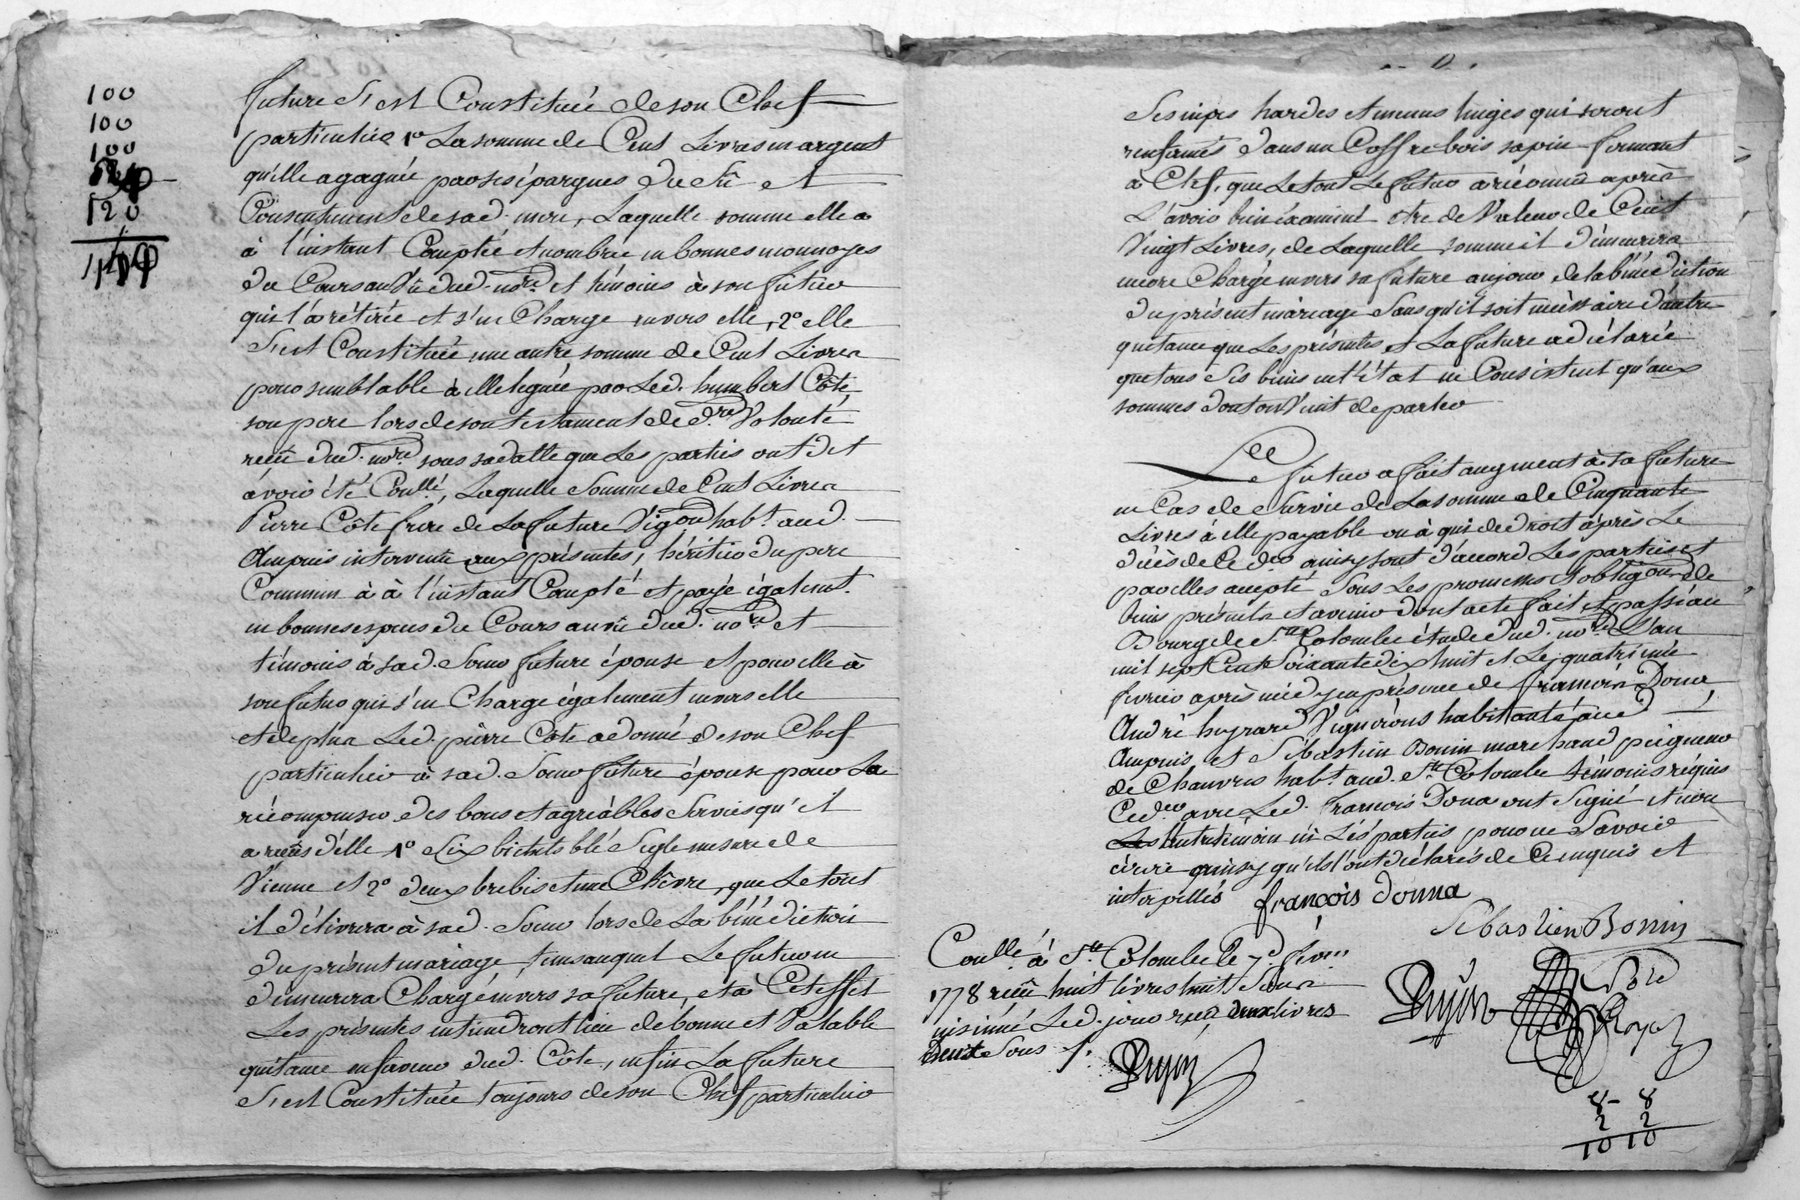 100
100
100
120
future s'est Constituée de son Chef
particulier 1° La somme de Cent Livres en argent
qu'elle a gagnée par ses épargnes du sû et
Consentement de sad. mere, Laquelle somme elle a
à l'instant Comptée et nombrée en bonnes monnoyes
du Cours au vû dud. nore et témoins à son futur
qui l'a rétirée et s'en Charge envers elle, 2° elle
s'est Constituée une autre somme de Cent Livres
pour semblable à elle leguée par Led. humbert Côte
son pere lors de son testament de dre Volonté
reçu dud. nore sous sa datte que Les parties ont dit
avoir été Conllé, Laquelle Somme de Cent Livres
Pierre Côte frere de La future Vigon habt. aud.
Ampuis intervenu aux présentes, héritier du pere
Commun a à l'instant Compté et payé égalemt.
en bonnes especes du Cours au vû dud. nore et
témoins à sad. Sœur future épouse et pour elle à
son futur qui s'en Charge également envers elle
et de plus Led. pierre Côte a donné de son Chef
particulier à sad. Sœur future épouse pour La
récompenser des bons et agréables Services qu'il
a reçus d'elle 1° Six bichets blé Seigle mesure de
Vienne et 2° deux brebis et une Chêvre, que Le tout
il délivrera à sad. Sœur lors de La bénédiction
du présent mariage, tems auquel Le futur en
demeurera Chargé envers sa future, et à Cet effet
Les présentes intiendront lieu de bonne et Valable
quittance en faveur dud. Côte, enfin La future
s'est Constituée toujours de son Chef particulier
Ses nipes hardes et menus linges qui seront
renfermés dans un Coffre bois sapin fermant
à Clef, que Le tout Le futur a réconnu après
L'avoir bien éxaminé etre de Valeur de Cent
Vingt Livres, de Laquelle somme il demeurera
encore Chargé envers sa future au jour de la bénédiction
du présent mariage Sans qu'il soit nécessaire d'autre
quitance que Les présentes, et La future a déclaré
que tous Ses biens en l'état ne Consistent qu'aux
sommes dont on Vient de parler
Le futur a fait augment à sa future
en Cas de Survie de La somme de Cinquante
Livres à elle payable ou à qui de droit après Le
décès de Ce dr. ainsy sont d'accord Les parties et
par elles accepté Sous Les promesses et obligons de
biens présents et avenir dont acte fait et passé au
Bourg de Ste Colombe étude dud. nore L'an
mil sept Cent Soixante dix huit et Le quatrieme
fevrier après midy en présence de francois Donna
André heyrard Vignerons habitants aud.
Ampuis et Sébastien Bonin marchand peigneur
de Chanvres habt. aud. Ste Colombe témoins réquis
Ced. avec Led. francois Donna ont Signé et non
L'autre témoin ni Les parties pour ne Savoir
écrire ainsy qu'ils l'ont déclarés de Ce enquis et
interpellés
françois donna
Sebastien Bonin
Conllé à Ste Colombe le 7e fevrer
1778 reçu huit livres huit Sous
insinué Led. jour reçu deux livres
deux Sous
Dujon
Dujon
8 - 8
2 2
10 10